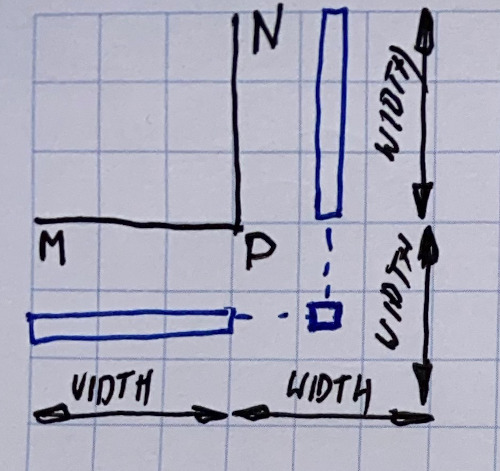 N
WIDTH
M
P
WIDTH
WIDTH
WIDTH